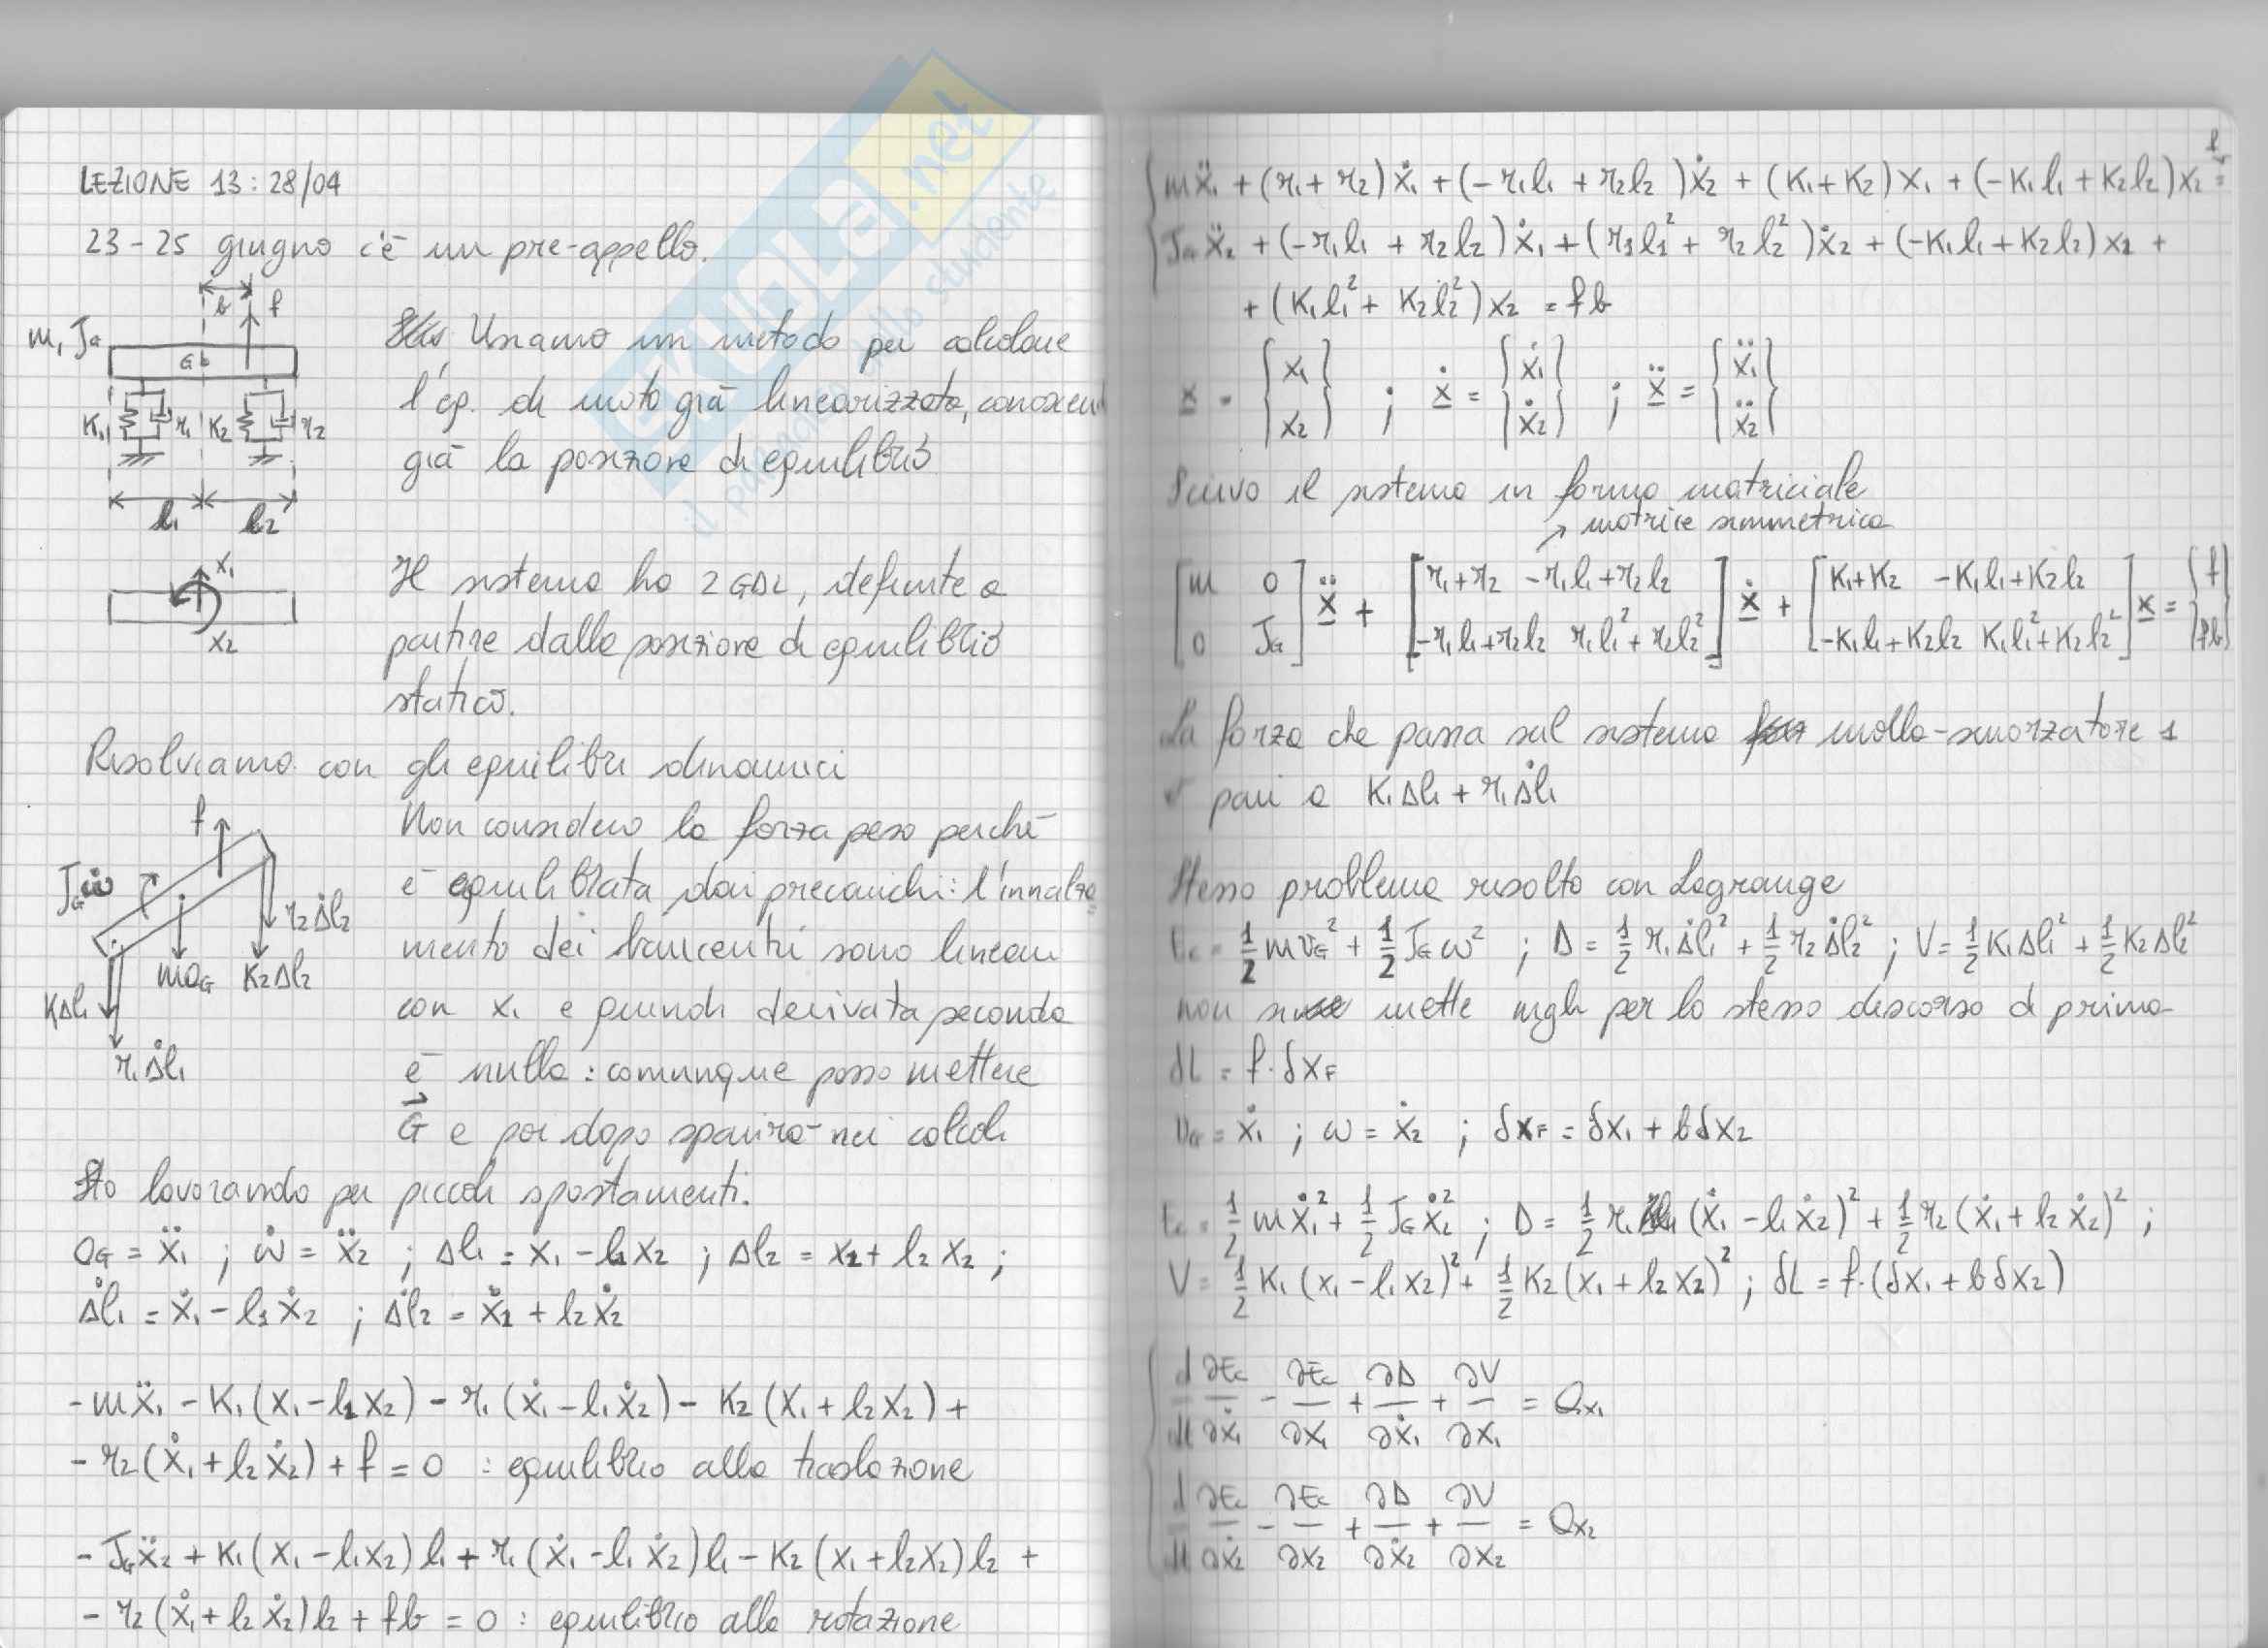 LEZIONE 13: 28/04
23-25 giugno c'è un pre-appello.
b
f
m, JG
G b
K1 r1 K2 r2
l1 l2
Usiamo un metodo per calcolare
l'eq. di moto già linearizzata, conoscen
già la posizione di equilibrio
x1
x2
Il sistema ha 2 GDL, definite a
partire dalla posizione di equilibrio
statico.
Risolviamo con gli equilibri dinamici
f
JG ω̇
r2 Δl̇2
maG K2Δl2
K1Δl1
r1 Δl̇1
Non considero la forza peso perché
è equilibrata dai precarichi: l'innalza
mento dei baricentri sono lineari
con x1 e quindi derivata seconda
è nulla: comunque posso mettere
G⃗ e poi dopo sparirà nei calcoli
Sto lavorando per piccoli spostamenti.
aG = ẍ1 ; ω̇ = ẍ2 ; Δl1 = x1 - l1x2 ; Δl2 = x1 + l2x2 ;
Δl̇1 = ẋ1 - l1ẋ2 ; Δl̇2 = ẋ1 + l2ẋ2
-mẍ1 - K1(x1 - l1x2) - r1(ẋ1 - l1ẋ2) - K2(x1 + l2x2) +
- r2(ẋ1 + l2ẋ2) + f = 0 : equilibrio alla traslazione
- JGẍ2 + K1(x1 - l1x2)l1 + r1(ẋ1 - l1ẋ2)l1 - K2(x1 + l2x2)l2 +
- r2(ẋ1 + l2ẋ2)l2 + fb = 0 : equilibrio alla rotazione
{ mẍ1 + (r1 + r2)ẋ1 + (-r1l1 + r2l2)ẋ2 + (K1 + K2)x1 + (-K1l1 + K2l2)x2 = f
JGẍ2 + (-r1l1 + r2l2)ẋ1 + (r1l1² + r2l2²)ẋ2 + (-K1l1 + K2l2)x1 +
+ (K1l1² + K2l2²)x2 = fb
x = {x1 x2} ; ẋ = {ẋ1 ẋ2} ; ẍ = {ẍ1 ẍ2}
Scrivo il sistema in forma matriciale
↗ matrice simmetrica
[m 0 [r1+r2 -r1l1+r2l2 [K1+K2 -K1l1+K2l2 {f
0 JG] ẍ + -r1l1+r2l2 r1l1²+r2l2²] ẋ + -K1l1+K2l2 K1l1²+K2l2²] x = fb}
La forza che passa sul sistema molla-smorzatore 1
è pari a K1Δl1 + r1Δl̇1
Stesso problema risolto con Lagrange
Ec = 1/2 mvG² + 1/2 JGω² ; D = 1/2 r1Δl̇1² + 1/2 r2Δl̇2² ; V = 1/2 K1Δl1² + 1/2 K2Δl2²
non si mette mgh per lo stesso discorso di prima
δL = f·δxF
vG = ẋ1 ; ω = ẋ2 ; δxF = δx1 + bδx2
Ec = 1/2 mẋ1² + 1/2 JGẋ2² ; D = 1/2 r1(ẋ1 - l1ẋ2)² + 1/2 r2(ẋ1 + l2ẋ2)² ;
V = 1/2 K1(x1 - l1x2)² + 1/2 K2(x1 + l2x2)² ; δL = f·(δx1 + bδx2)
{ d/dt ∂Ec/∂ẋ1 - ∂Ec/∂x1 + ∂D/∂ẋ1 + ∂V/∂x1 = Qx1
d/dt ∂Ec/∂ẋ2 - ∂Ec/∂x2 + ∂D/∂ẋ2 + ∂V/∂x2 = Qx2
SKUOLA.net
il paradiso dello studente